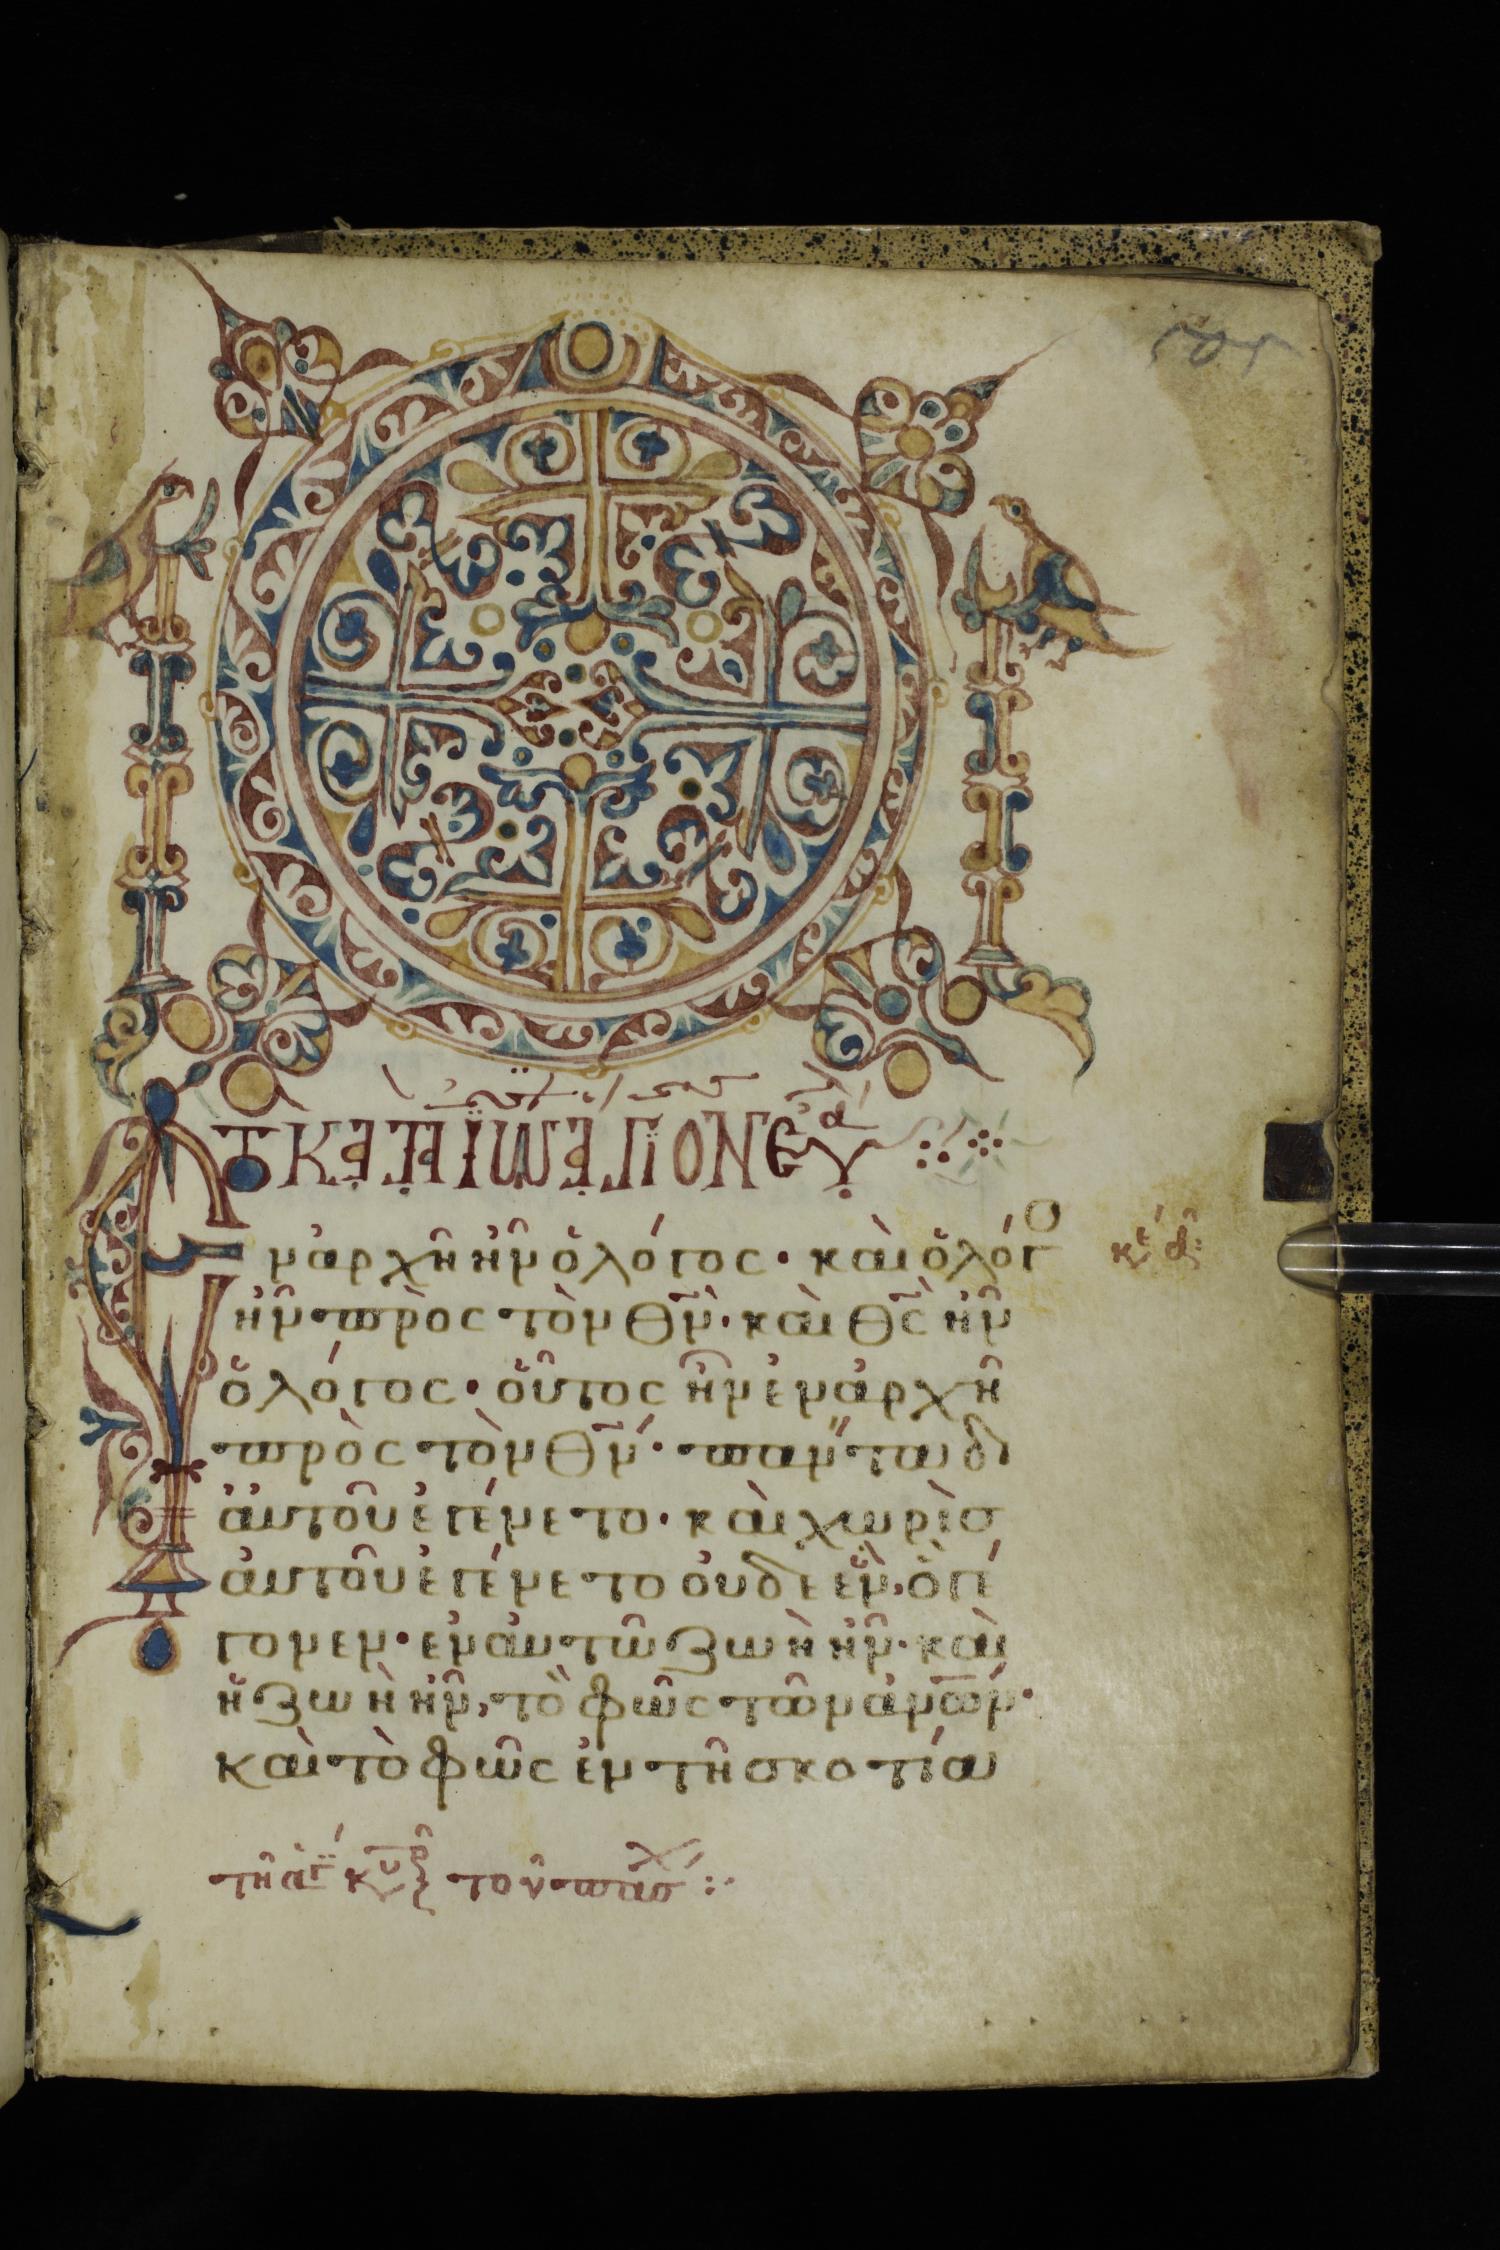 ΤΟ ΚΑΤΑ ΙΩΑΝΝΟΝ ΕΥΑ
Ἐν ἀρχῆ ἦν ὁ λόγος· καὶ ὁ λόγο
ἦν πρὸς τὸν θν̅· καὶ θς̅ ἦν
ὁ λόγος· οὗτος ἦν ἐν ἀρχῆ
πρὸς τὸν θν̅· πάντα δι
ἀυτοῦ ἐγένετο· καὶ χωρὶς
ἀυτοῦ ἐγένετο ὀυδε ἓν, ὃ γέ
γονεν· ἐν ἀυτῶ ζωὴ ἦν· καὶ
ἡ ζωὴ ἦν, τὸ φῶς τῶν ἀνω̅ν·
καὶ τὸ φῶς ἐν τῆ σκοτία
τῆ ἁγ κυρ τοῦ πάσχ :·